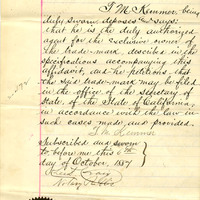 T. M. Kenmor being
duly sworn deposes & says:
that he is the duly authorized
agent for the exclusive owner of
the trade-mark, described in the
specifications accompanying this
affidavit, and he petitions that
the said trade-mark may be filed
in the office of the secretary of
State, of the State of California,
in accordance with the law in
such cases made and provided.
Subscribed and sworn
to before me this 6th
day of October, 1887
Notary Public